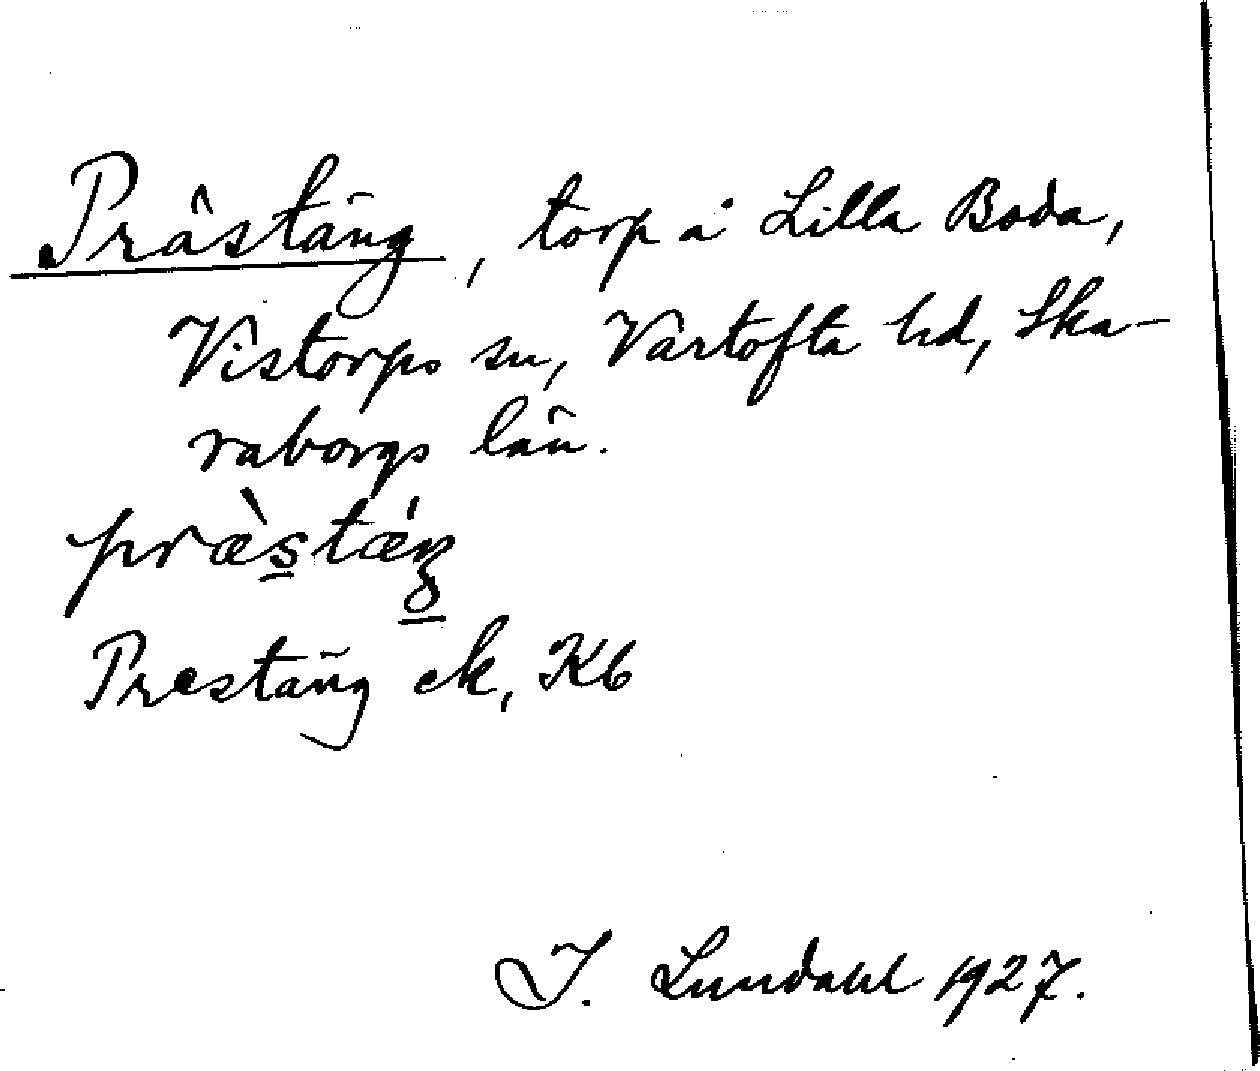 Prästäng, torp å Lilla Boda,
Vistorps sn, Vartofta hd, Ska-
raborgs län.
præ̀stǽŋ
Prestäng ek, Kb
I. Lundahl 1927.